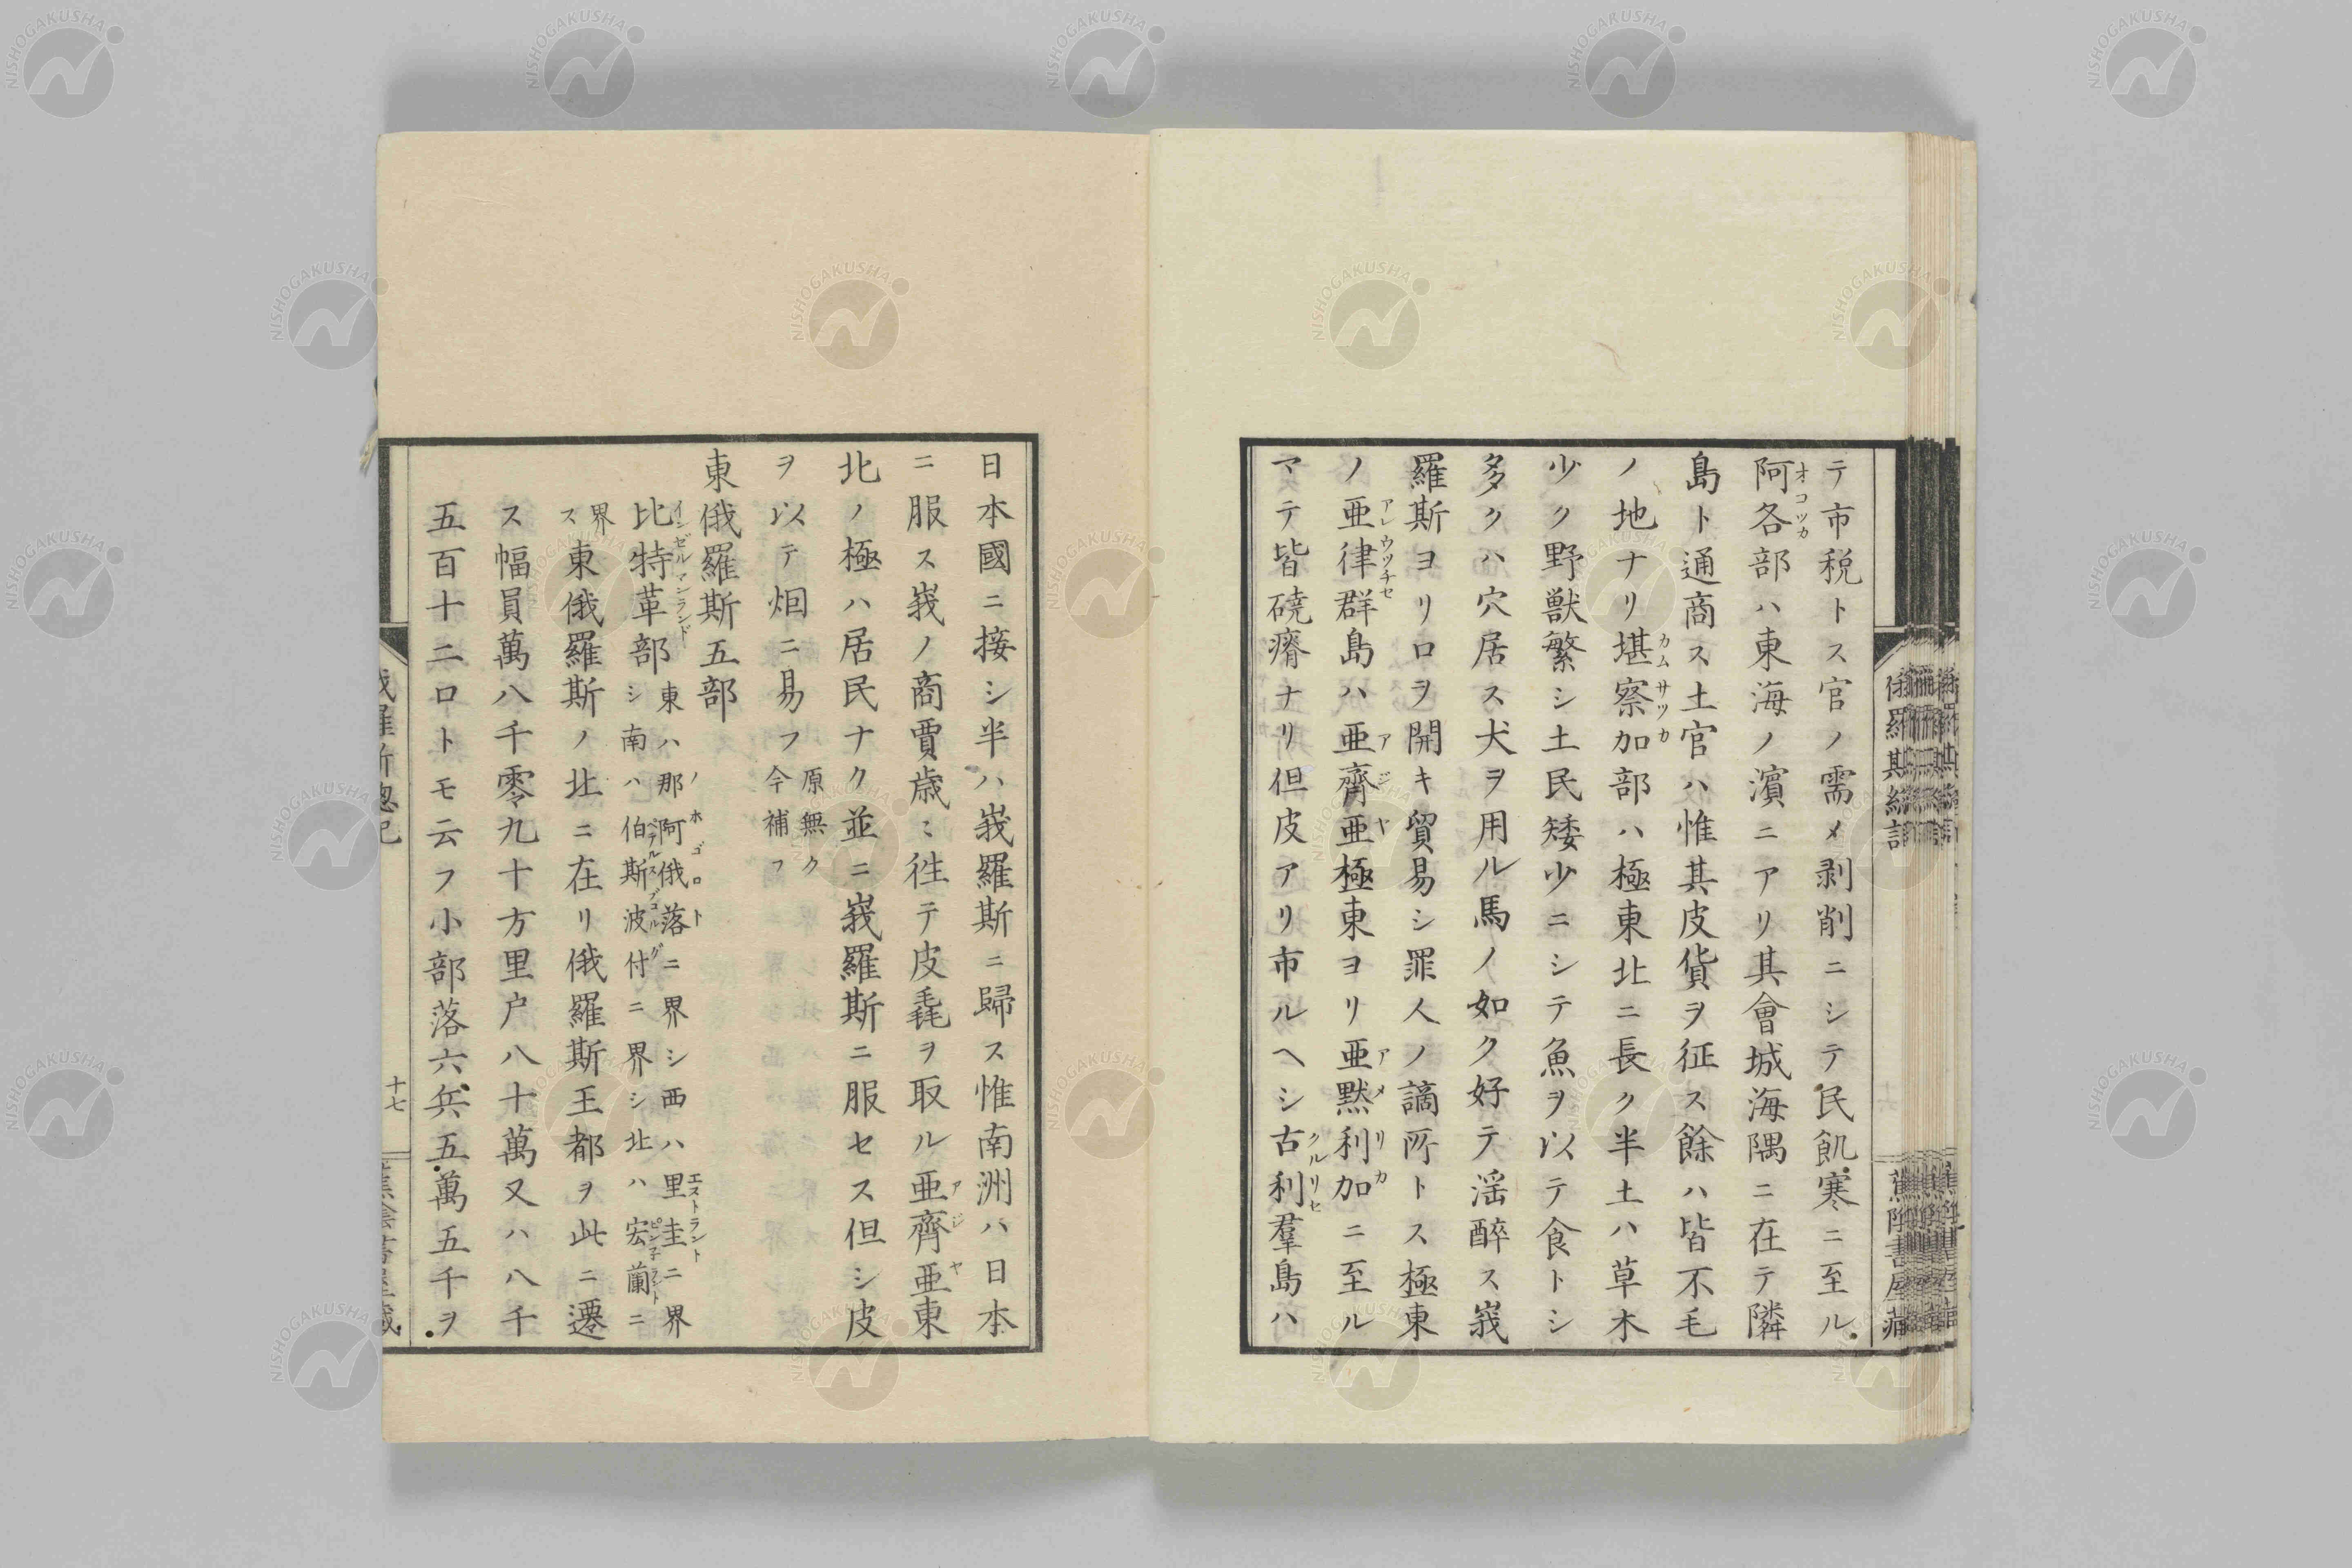 テ市税トス官ノ需メ剥削ニシテ民飢寒ニ至ル
阿各部ハ東海ノ濱ニアリ其會城海隅ニ在テ隣
オコツカ
島ト通商ス土官ハ惟其皮貨ヲ征ス餘ハ皆不毛
ノ地ナリ堪察加部ハ極東北ニ長ク半土ハ草木
カムサツカ
少ク野獣繁シ土民矮少ニシテ魚ヲ以テ食トシ
多クハ穴居ス犬ヲ用ル馬ノ如ク好テ滛醉ス峩
羅斯ヨリロヲ開キ貿易シ罪人ノ謫所トス極東
ノ亜律群島ハ亜齊亜極東ヨリ亜黙利加ニ至ル
アレウツチセ
アジヤ
アメリカ
マテ皆磽瘠ナリ但皮アリ市ルヘシ古利羣島ハ
クルリセ
日本國ニ接シ半ハ峩羅斯ニ歸ス惟南洲ハ日本
ニ服ス峩ノ商賈歳ミ徃テ皮毳ヲ取ル亜齊亜東
アジヤ
北ノ極ハ居民ナク並ニ峩羅斯ニ服セス但シ皮
ヲ以テ烟ニ易フ
原無ク
今補フ
東俄羅斯五部
比特革部
インゼルマンランド
東ハ那阿俄落ニ界シ西ハ里圭ニ界
ノホゴロト
エストラント
シ南ハ伯斯波付ニ界シ北ハ宏蘭ニ
ペテルスブゴルグ
ピン子ラント
界
ス
東俄羅斯ノ北ニ在リ俄羅斯王都ヲ此ニ遷
ス幅員萬八千零九十方里戸八十萬又ハ八千
五百十二ロトモ云フ小部落六兵五萬五千ヲ
十七
NISHOGAKUSHA